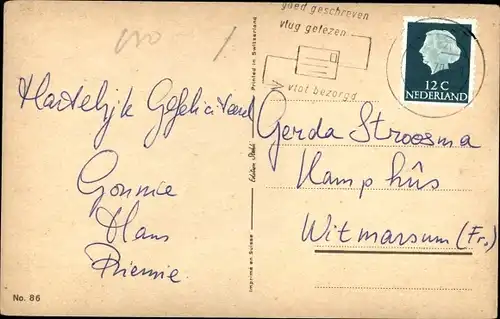 goed geschreven
vlug gelezen
vlot bezorgd
12 C
NEDERLAND
Hartelijk Gefeliciteerd
Hans
Gerda Stroosma
Kamphûs
Witmarsum (Fr.)
Printed in Switzerland
Edition Stehli
Imprimé en Suisse
No. 86